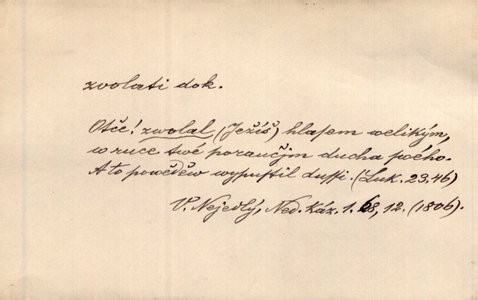 zvolati dok.
Otče! zwolal (Ježíš) hlasem welikým,
w ruce twé poraučjm ducha swého.
A to powěděw wypustil dussi. (Luk. 23.46)
V. Nejedlý, Ned. Káz. 1. 68, 12. (1806).